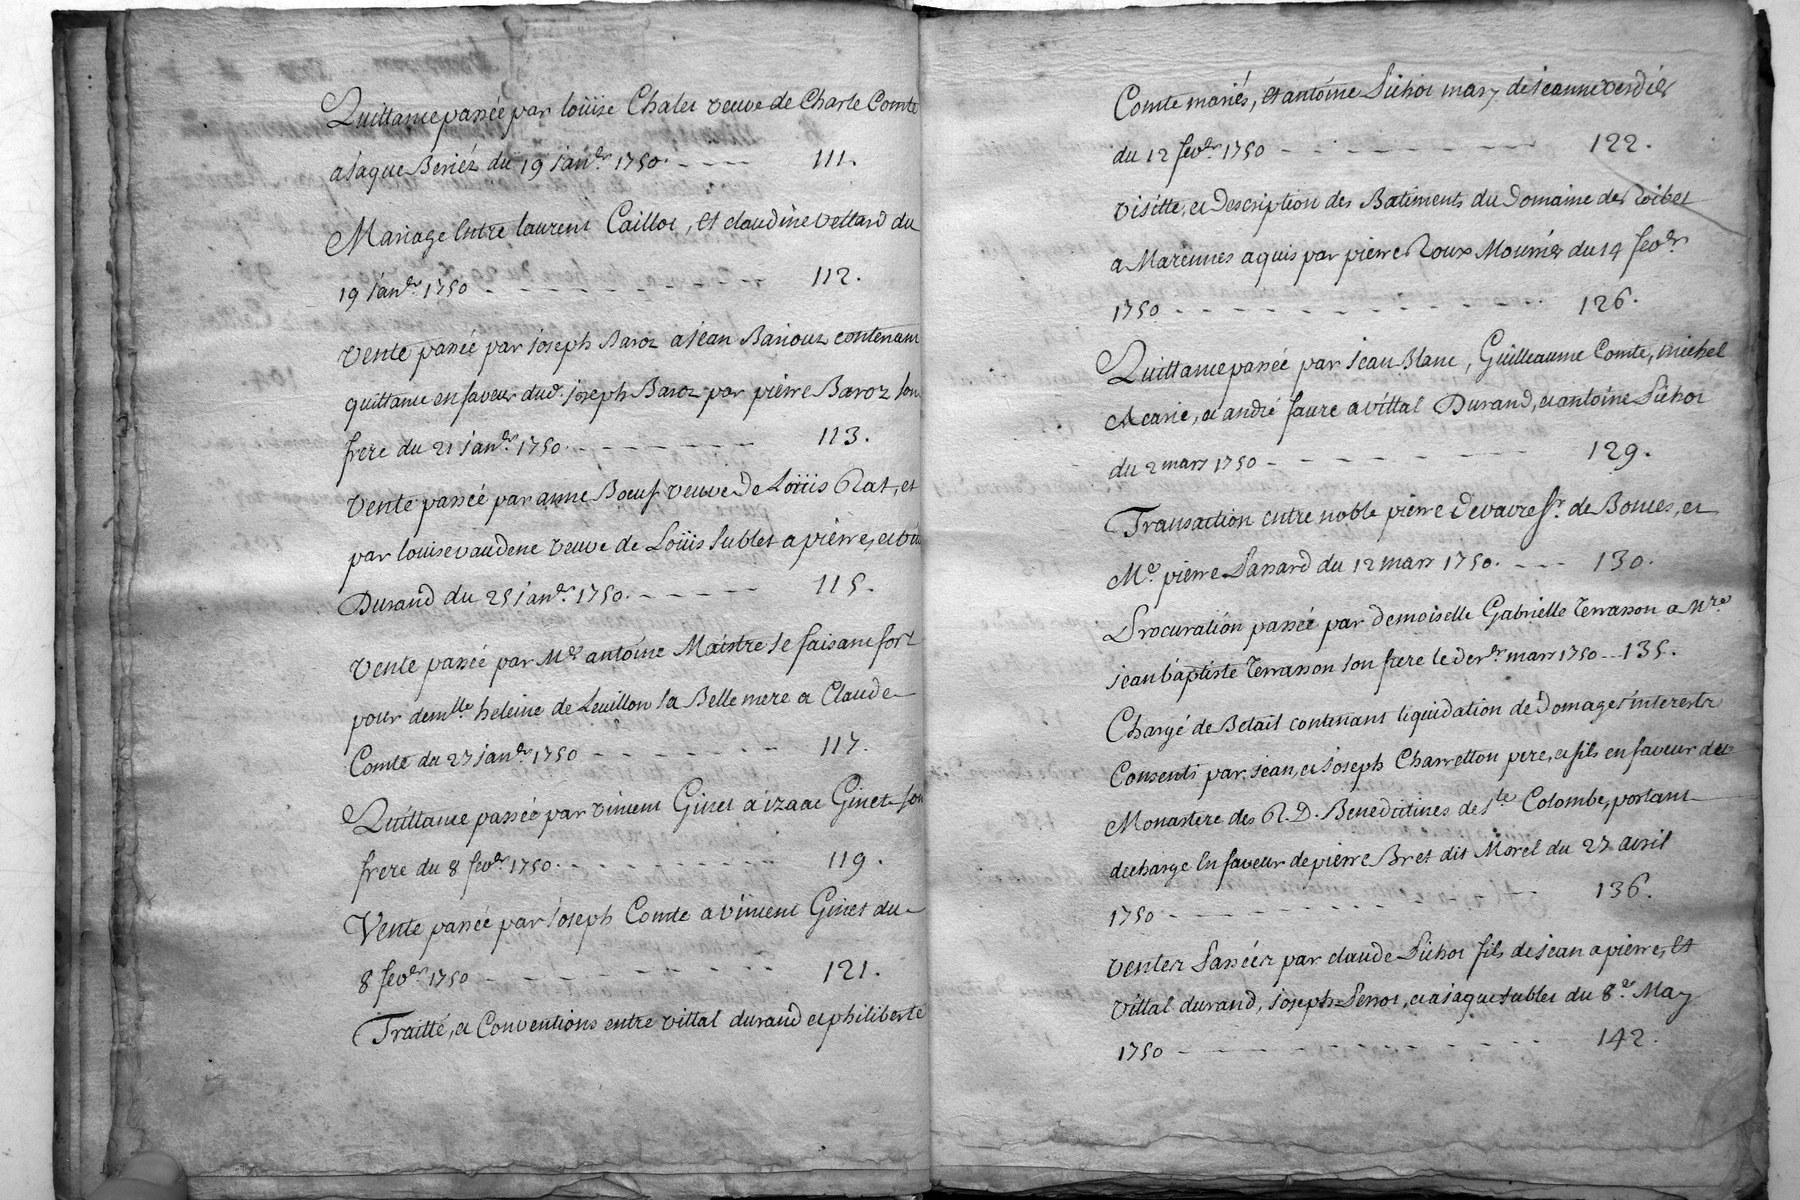 Quittance passée par loüise Chalet veuve de Charle Comte
a Jaque Beriéz du 19 janer. 1750. - - - - 111.
Mariage Entre laurent Caillot, et claudine vettard du
19 Janer. 1750 - - - - - - - - - 112.
Vente passée par Joseph Baroz a Jean Bariouz contenant
quittance en faveur dud. Joseph Baroz par piérre Baroz son
frere du 21 janer. 1750. - - - - - - - 113.
Vente passée par anne Boeuf veuve de Loüis Rat, et
par louise vaudene veuve de Loüis Sublet a piérre, et vit
Durand du 25 janer. 1750. - - - - - 115.
Vente passée par Me. antoine Maistre se faisant fort
pour demlle heleine de Leuillon sa Belle mere a Claude
Comte du 27 janer. 1750 - - - - - - - 117.
Quittance passée par vincent Ginet a izaac Ginet son
frere du 8 fever. 1750. - - - - - - - - 119.
Vente passée par Joseph Comte a vincent Ginet du
8 fever. 1750 - - - - - - - - - 121.
Traitté, et Conventions entre vittal durand et philiberte
Comte mariés, et antoine Pichot mary de jeanne verdiér
du 12 fever. 1750 - - - - - - - 122.
Visitte, et Description des Batiments du Domaine de
a Marennes aquis par piérre Roux Mouriér du 14 fever.
1750 - - - - - - - - - - 126.
Quittance passée par jean Blanc, Guilleaume Comte, michel
Acarie, et andré faure a vittal Durand, et antoine Pichot
du 2 mars 1750 - - - - - - - - 129.
Transaction entre noble piérre Devavre sr. de Bonces, et
Me. piérre Passard du 12 mars 1750. - - - 130.
Procuration passée par Demoiselle Gabrielle Terrasson a Mre.
jean baptiste Terrasson son frere le derer mars 1750 - - 135.
Chargé de Betail contenant liquidation de Domages interests
Consenti par jean, et joseph Charretton pere, et fils en faveur du
Monastere des R. D. Benedictines de Ste Colombe, portant
decharge En faveur de piérre Bret dit Morel du 27 avril
1750 - - - - - - - - - 136.
Ventes Passées par claude Pichot fils de jean a piérre, et
Vittal durand, joseph Perrot, et a jaque Sublet du 8e. May
1750 - - - - - - - - - - 142.